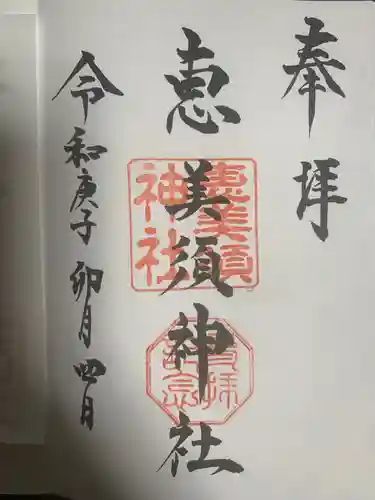 奉拝
恵美須神社
令和庚子卯月四日
恵美須
神社